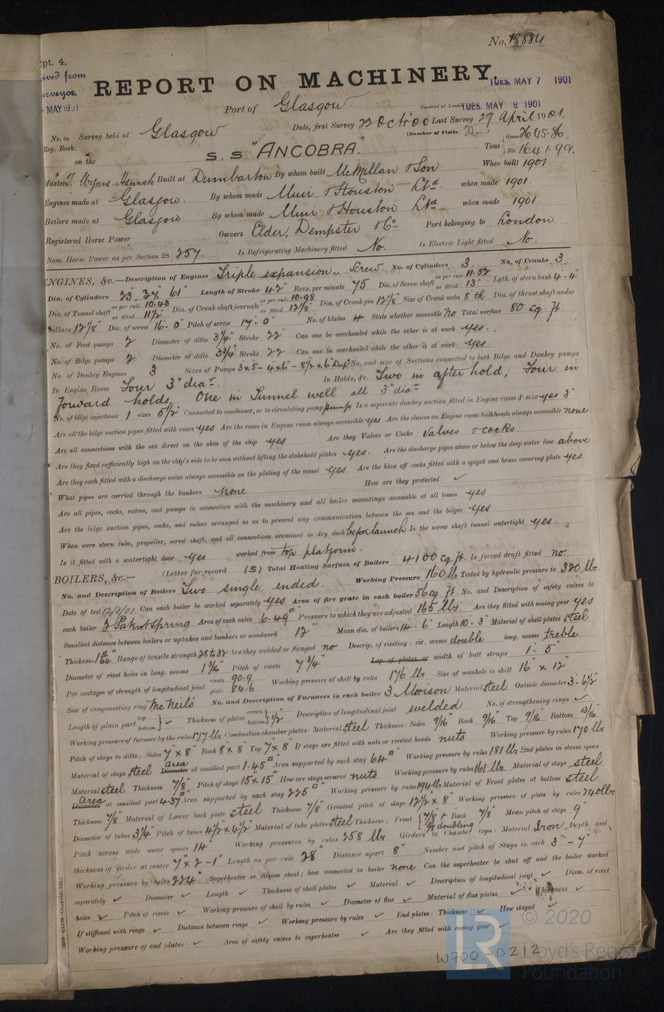 Rpt. 4.
No. 18884
REPORT ON MACHINERY.
TUES. MAY 7 1901
Port of Glasgow
Received at London TUES. MAY 8 1901
No. in Survey held at Glasgow Date, first Survey 22 Oct 00 Last Survey 29 April 1901
Reg. Book. (Number of Visits
on the S.S "ANCOBRA." Tons Gross 2645.86 Net 1641.99
Built at Dumbarton By whom built McMillan & Son When built 1901
Engines made at Glasgow By whom made Muir & Houston Ltd when made 1901
Boilers made at Glasgow By whom made Muir & Houston Ltd when made 1901
Registered Horse Power Owners Elder, Dempster & Co Port belonging to London
Nom. Horse Power as per Section 28 257 Is Refrigerating Machinery fitted No Is Electric Light fitted No
ENGINES, &c.—Description of Engines Triple expansion Screw No. of Cylinders 3 No. of Cranks 3
Dia. of Cylinders 23. 37. 61" Length of Stroke 42" Revs. per minute 75 Dia. of Screw shaft as per rule 11.52 as fitted 13" Lgth. of stern bush 4-4"
Dia. of Tunnel shaft as per rule 10.43 as fitted 11 1/2" Dia. of Crank shaft journals as per rule 10.98 as fitted 12 1/8" Dia. of Crank pin 12 1/8" Size of Crank webs Dia. of thrust shaft under
collars 12 1/8" Dia. of screw 16-0" Pitch of screw 17-0" No. of blades 4 State whether moveable no Total surface 80 sq. ft
No. of Feed pumps 2 Diameter of ditto 3 1/4" Stroke 22" Can one be overhauled while the other is at work yes
No. of Bilge pumps 2 Diameter of ditto 3 3/4" Stroke 22" Can one be overhauled while the other is at work yes
No. of Donkey Engines 3 Sizes of Pumps No. and size of Suctions connected to both Bilge and Donkey pumps
In Engine Room Four 3" dia. In Holds, &c. Two in after hold, Four in
forward holds, One in Tunnel well all 3" dia
No. of bilge injections 1 sizes 5 1/2" Connected to condenser, or to circulating pump pump Is a separate donkey suction fitted in Engine room & size yes 3"
Are all the bilge suction pipes fitted with roses yes Are the roses in Engine room always accessible yes Are the sluices on Engine room bulkheads always accessible none
Are all connections with the sea direct on the skin of the ship yes Are they Valves or Cocks valves & cocks
Are they fixed sufficiently high on the ship's side to be seen without lifting the stokehold plates yes Are the discharge pipes above or below the deep water line above
Are they each fitted with a discharge valve always accessible on the plating of the vessel yes Are the blow off cocks fitted with a spigot and brass covering plate yes
What pipes are carried through the bunkers none How are they protected ✓
Are all pipes, cocks, valves, and pumps in connection with the machinery and all boiler mountings accessible at all times yes
Are the bilge suction pipes, cocks, and valves arranged so as to prevent any communication between the sea and the bilges yes
When were stern tube, propeller, screw shaft, and all connections examined in dry dock before launch Is the screw shaft tunnel watertight yes
Is it fitted with a watertight door yes worked from top platform
BOILERS, &c.— (Letter for record (S) Total Heating Surface of Boilers 4100 sq ft Is forced draft fitted no
No. and Description of Boilers Two single ended Working Pressure 160 lbs Tested by hydraulic pressure to 320 lbs
Date of test Can each boiler be worked separately yes Area of fire grate in each boiler 56 sq ft No. and Description of safety valves to
each boiler 2 Patent Spring Area of each valve 6.49" Pressure to which they are adjusted 165 lbs Are they fitted with easing gear yes
Smallest distance between boilers or uptakes and bunkers or woodwork 12" Mean dia. of boilers 14-6" Length 10-3" Material of shell plates steel
Thickness Range of tensile strength 28 to 32 Are they welded or flanged no Descrip. of riveting: cir. seams double long. seams treble
Diameter of rivet holes in long. seams Pitch of rivets 7 3/4" Lap of plates or width of butt straps 1-5"
Per centages of strength of longitudinal joint rivets 90.9 plate 84.6 Working pressure of shell by rules 176 lbs Size of manhole in shell 16" x 12"
Size of compensating ring McNeils No. and Description of Furnaces in each boiler 3 Morison Material steel Outside diameter 3-6 1/2"
Length of plain part top bottom ✓ Thickness of plates crown bottom 1/2" Description of longitudinal joint welded No. of strengthening rings ✓
Working pressure of furnace by the rules 177 lbs Combustion chamber plates: Material steel Thickness: Sides 9/16 Back 9/16 Top 9/16 Bottom 13/16
Pitch of stays to ditto: Sides 7" x 8" Back 8" x 8" Top 7" x 8" If stays are fitted with nuts or riveted heads nuts Working pressure by rules 170 lbs
Material of stays steel Area at smallest part 1.45" Area supported by each stay 64" Working pressure by rules 181 lbs End plates in steam space
Material steel Thickness 7/8" Pitch of stays 15 x 15" How are stays secured nuts Working pressure by rules 161 lbs Material of stays steel
Area at smallest part 4.37" Area supported by each stay 225" Working pressure by rules 194 lbs Material of Front plates at bottom steel
Thickness 7/8" Material of Lower back plate steel Thickness 7/8" Greatest pitch of stays 12 1/2 x 8" Working pressure of plate by rules 240 lbs
Diameter of tubes 3 1/4" Pitch of tubes 4 1/2 x 4 1/2" Material of tube plates steel Thickness: Front Back 7/8" Mean pitch of stays 9"
Pitch across wide water spaces 14" Working pressures by rules 258 lbs Girders to Chamber tops: Material Iron Depth and
thickness of girder at centre 7" x 2-1" Length as per rule 28" Distance apart 8" Number and pitch of Stays in each 3-7"
Working pressure by rules 224 Superheater or Steam chest; how connected to boiler none Can the superheater be shut off and the boiler worked
separately ✓ Diameter ✓ Length ✓ Thickness of shell plates ✓ Material ✓ Description of longitudinal joint ✓ Diam. of rivet
holes ✓ Pitch of rivets ✓ Working pressure of shell by rules ✓ Diameter of flue ✓ Material of flue plates ✓ Thickness ✓
If stiffened with rings ✓ Distance between rings ✓ Working pressure by rules ✓ End plates: Thickness ✓ How stayed ✓
Working pressure of end plates ✓ Area of safety valves to superheater ✓ Are they fitted with easing gear ✓
W700-0212
LR
© 2020
Lloyd's Register
Foundation